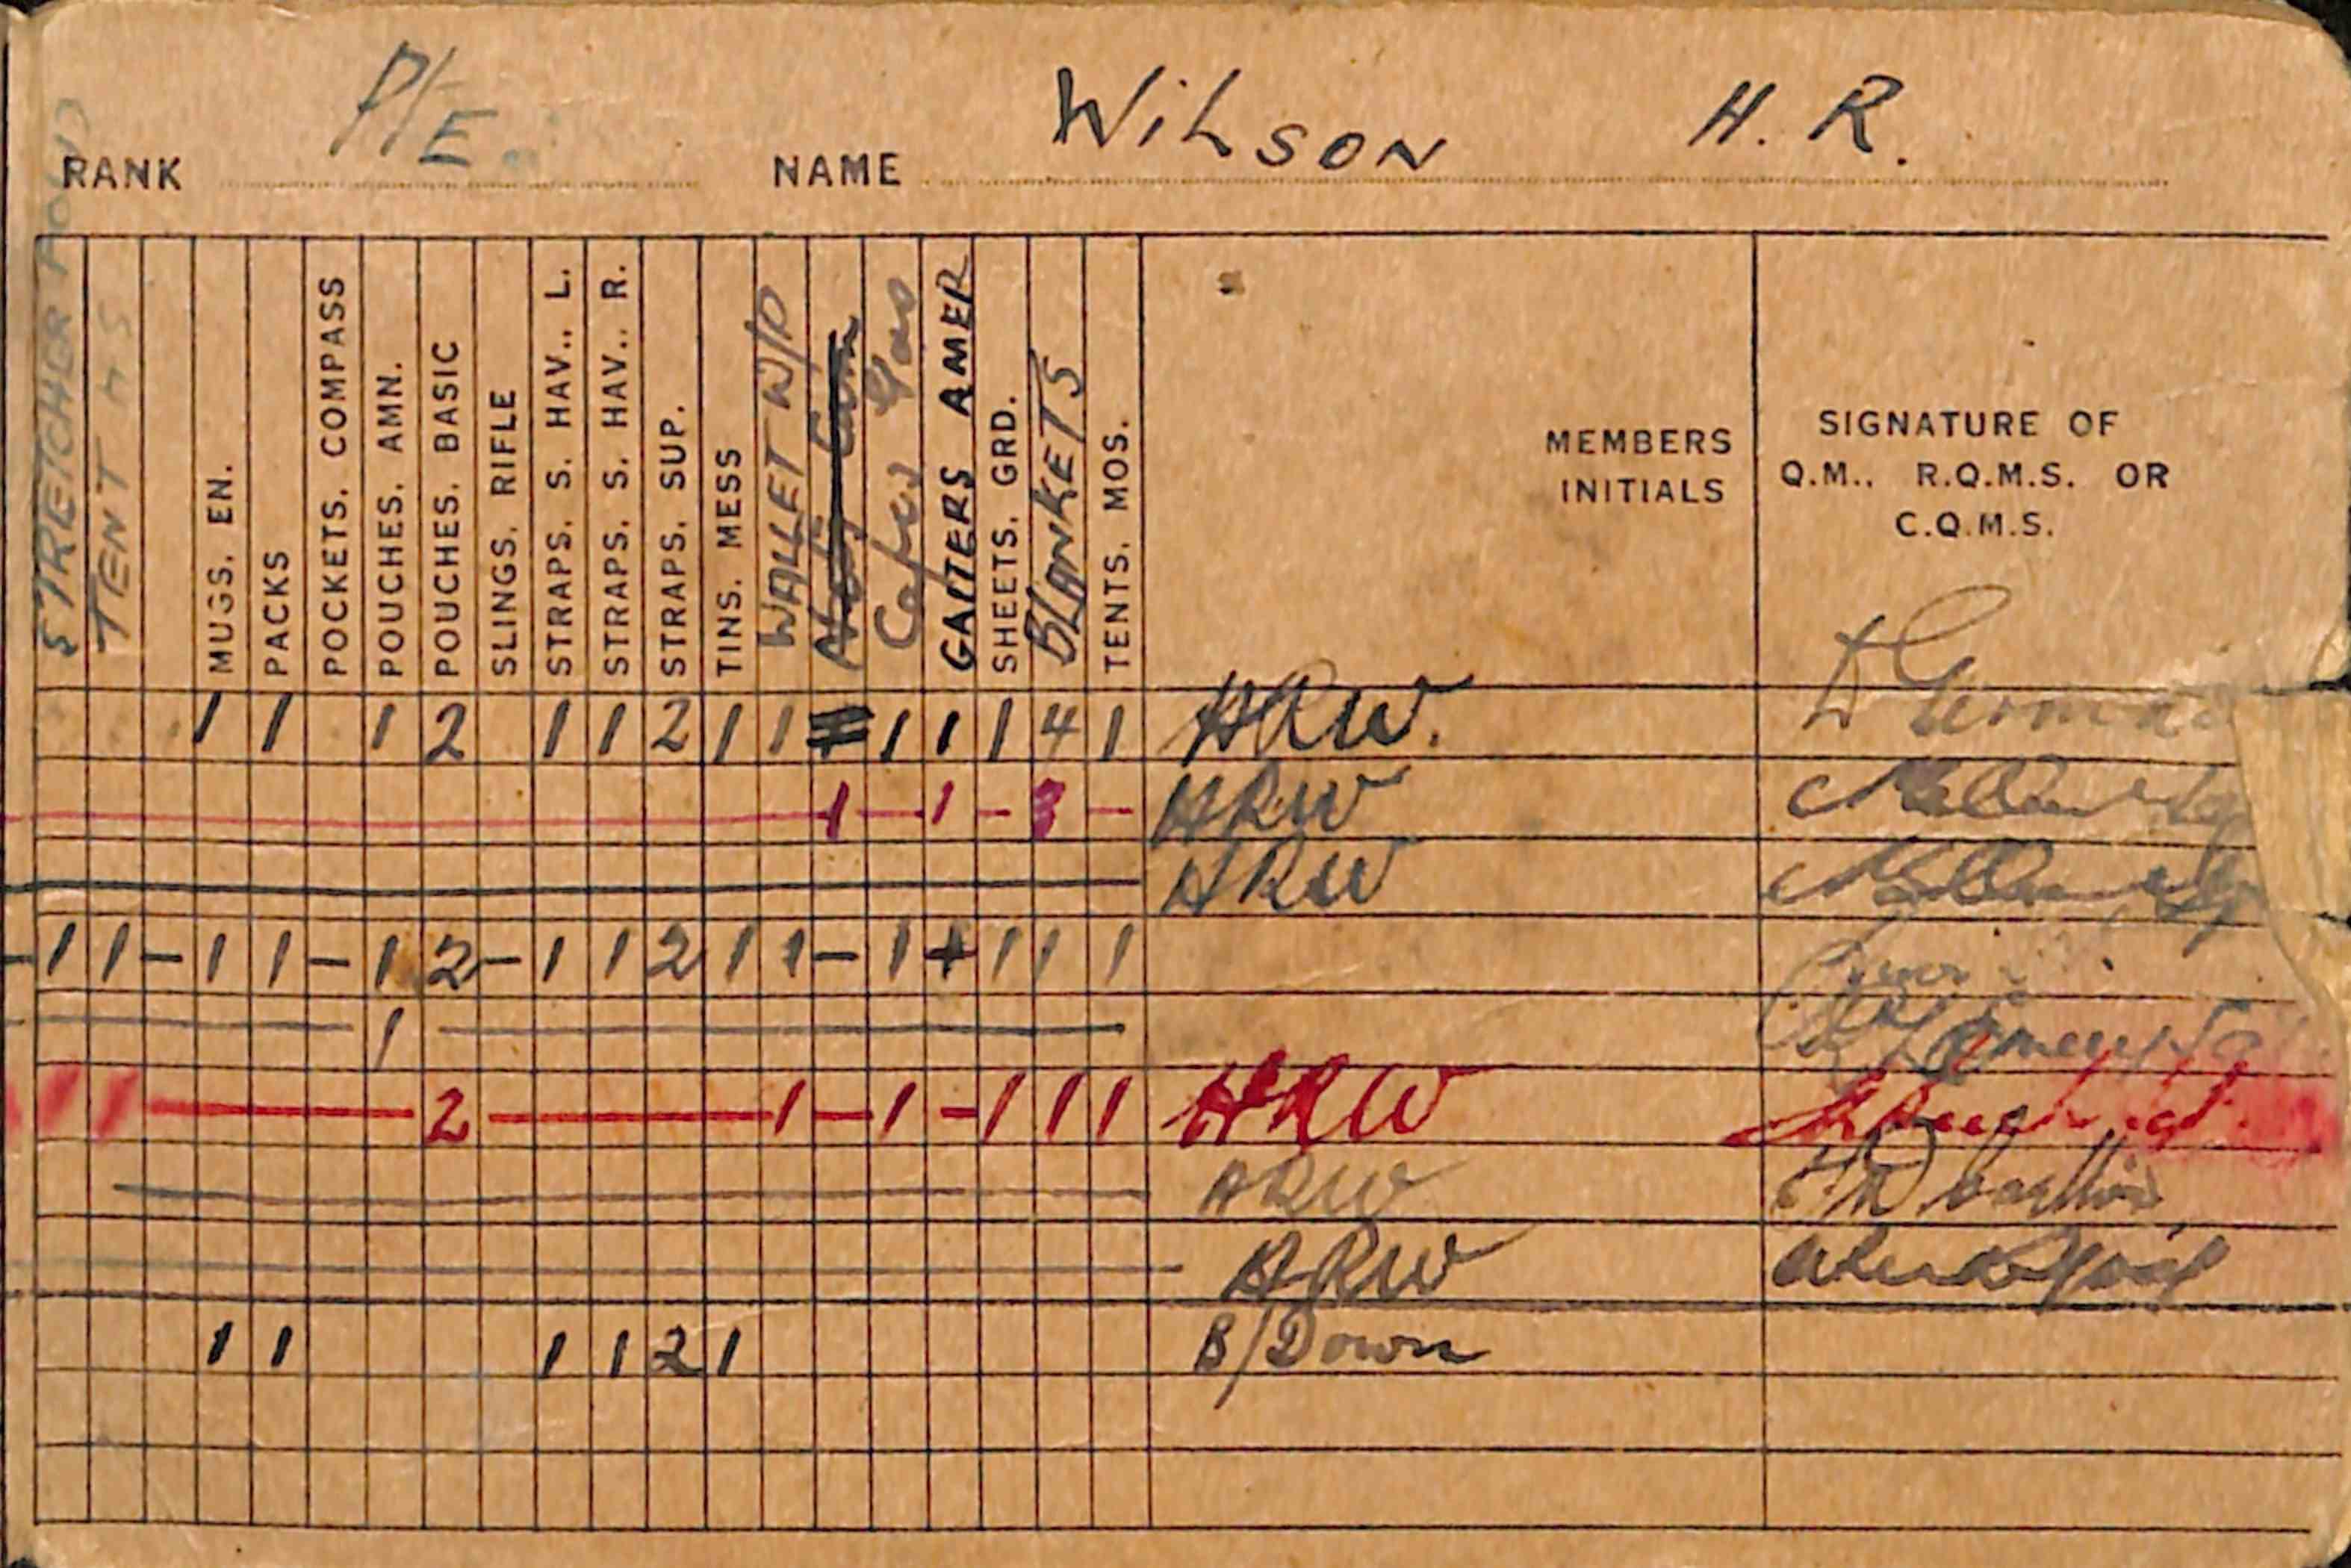 RANK PTE. NAME WILSON H. R.
STRETCHER
TENT H S
MUGS. EN.
PACKS
POCKETS. COMPASS
POUCHES. AMN.
POUCHES. BASIC
SLINGS. RIFLE
STRAPS. S. HAV., L.
STRAPS. S. HAV., R.
STRAPS. SUP.
TINS. MESS
WALLET W/P
Capes Gas
GAITERS AMER
SHEETS. GRD.
BLANKETS
TENTS. MOS.
MEMBERS
INITIALS
SIGNATURE OF
Q.M., R.Q.M.S. OR
C.Q.M.S.
1 1 1 2 1 1 2 1 1 1 1 1 4 1 HRW.
1 — 1 — 3 — HRW
HRW
— 1 1 — 1 1 — 1 2 — 1 1 2 1 1 — 1 + 1 1 1
1
1 1 — 2 — 1 — 1 — 1 1 1 HRW
HRW
HRW
1 1 1 1 2 1 B/Down